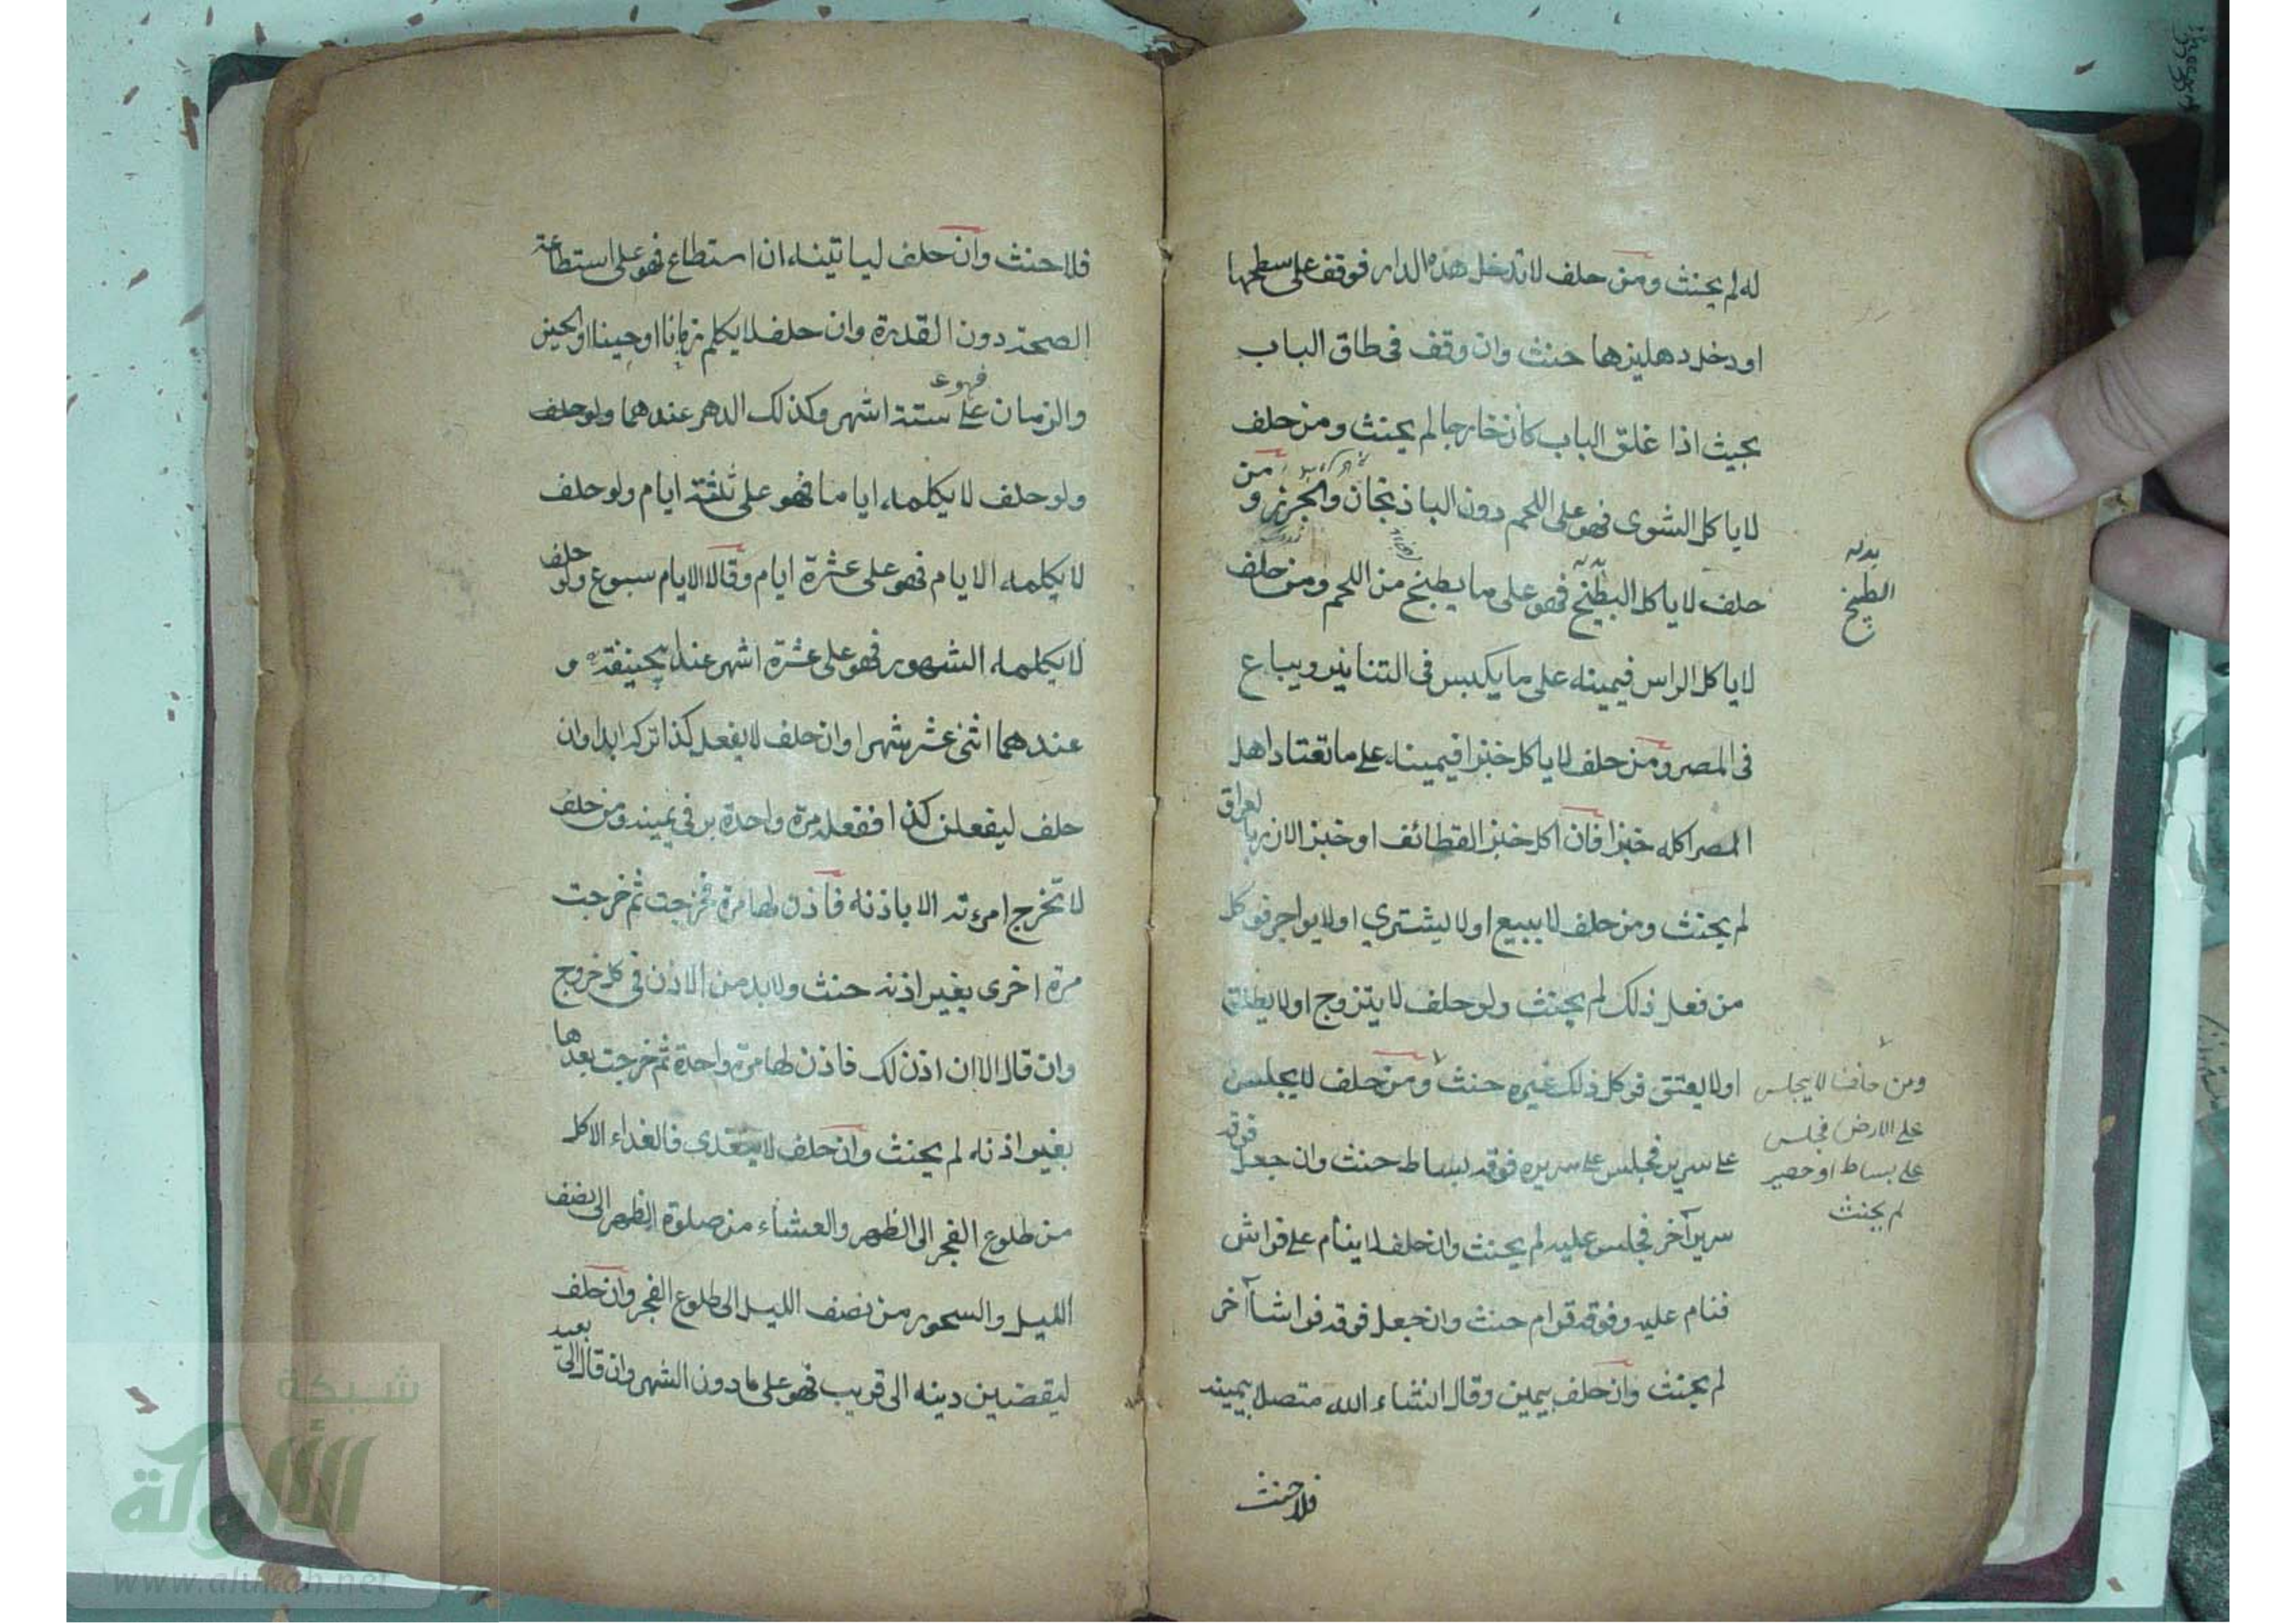 له لم يحنث ومن حلف لا تدخل هذه الدار فوقف على سطحها
او دخل دهليزها حنث وان وقف فى طاق الباب
بحيث اذا غلق الباب كان خارجا لم يحنث ومن حلف
لا ياكل الشوى فهو على اللحم دون الباذنجان والجزر ومن
حلف لا ياكل البطّيخ فهو على ما يطبخ من اللحم ومن حلف
لا ياكل الراس فيمينه على ما يكبس فى التنانير ويباع
فى المصر ومن حلف لا ياكل خبزا فيمينه على ما تعتاد اهل
المصر اكله خبزا فان اكل خبز القطائف او خبز الارز بالعراق
لم يحنث ومن حلف لا يبيع او لا ليشترى او لا يواجر فوكل
من فعل ذلك لم يحنث ولو حلف لا يتزوج او لا يطلق
او لا يعتق فوكل ذلك غيره حنث ومن حلف لا يجلس
على سرير فجلس على سريره فوقه بساط حنث وان جعل فوقه
سرير آخر فجلس عليه لم يحنث وان حلف لا ينام على فراش
فنام عليه وفوقه قوام حنث وان جعل فوقه فراشا آخر
لم يحنث وان حلف بيمين وقال انشاء الله متصل بيمينه
فلا حنث
بدله
الطبيخ
ومن حلف لا يجلس
على الارض فجلس
على بساط او حصير
لم يحنث
فلا حنث وان حلف لياتينه ان استطاع فهو على استطاعة
الصحة دون القدرة وان حلف لا يكلم زمانا او حينا او الحين
والزمان فهو على ستة اشهر وكذلك الدهر عندهما ولو حلف
ولو حلف لا يكلمه اياما فهو على ثلثة ايام ولو حلف
لا يكلمه الايام فهو على عشرة ايام وقالا الايام سبوع ولو حلف
لا يكلمه الشهور فهو على عشرة اشهر عند ابيحنيفة و
عندهما اثنى عشر شهرا وان حلف لا يفعل كذا تركه ابدا وان
حلف ليفعلن كذا ففعله مرة واحدة بر فى يمينه ومن حلف
لا تخرج امرءته الا باذنه فاذن لها مرة فخرجت ثم خرجت
مرة اخرى بغير اذنه حنث ولا بد من الاذن فى كل خروج
وان قال الا ان اذن لك فاذن لها مرة واحدة ثم خرجت بعدها
بغير اذنه لم يحنث وان حلف لا يتغدى فالغداء الاكل
من طلوع الفجر الى الظهر والعشاء من صلوة الظهر الى نصف
الليل والسحور من نصف الليل الى طلوع الفجر وان حلف
ليقضين دينه الى قريب فهو على ما دون الشهر وان قال الى بعيد
شبكة
الألوكة
www.alukah.net